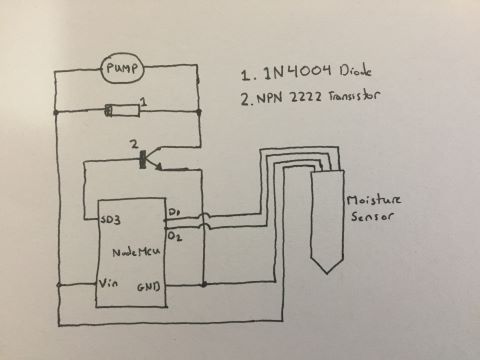 PUMP
1
1. 1N4004 Diode
2. NPN 2222 Transistor
2
SD3
D1
D2
NodeMCU
Vin
GND
Moisture
Sensor